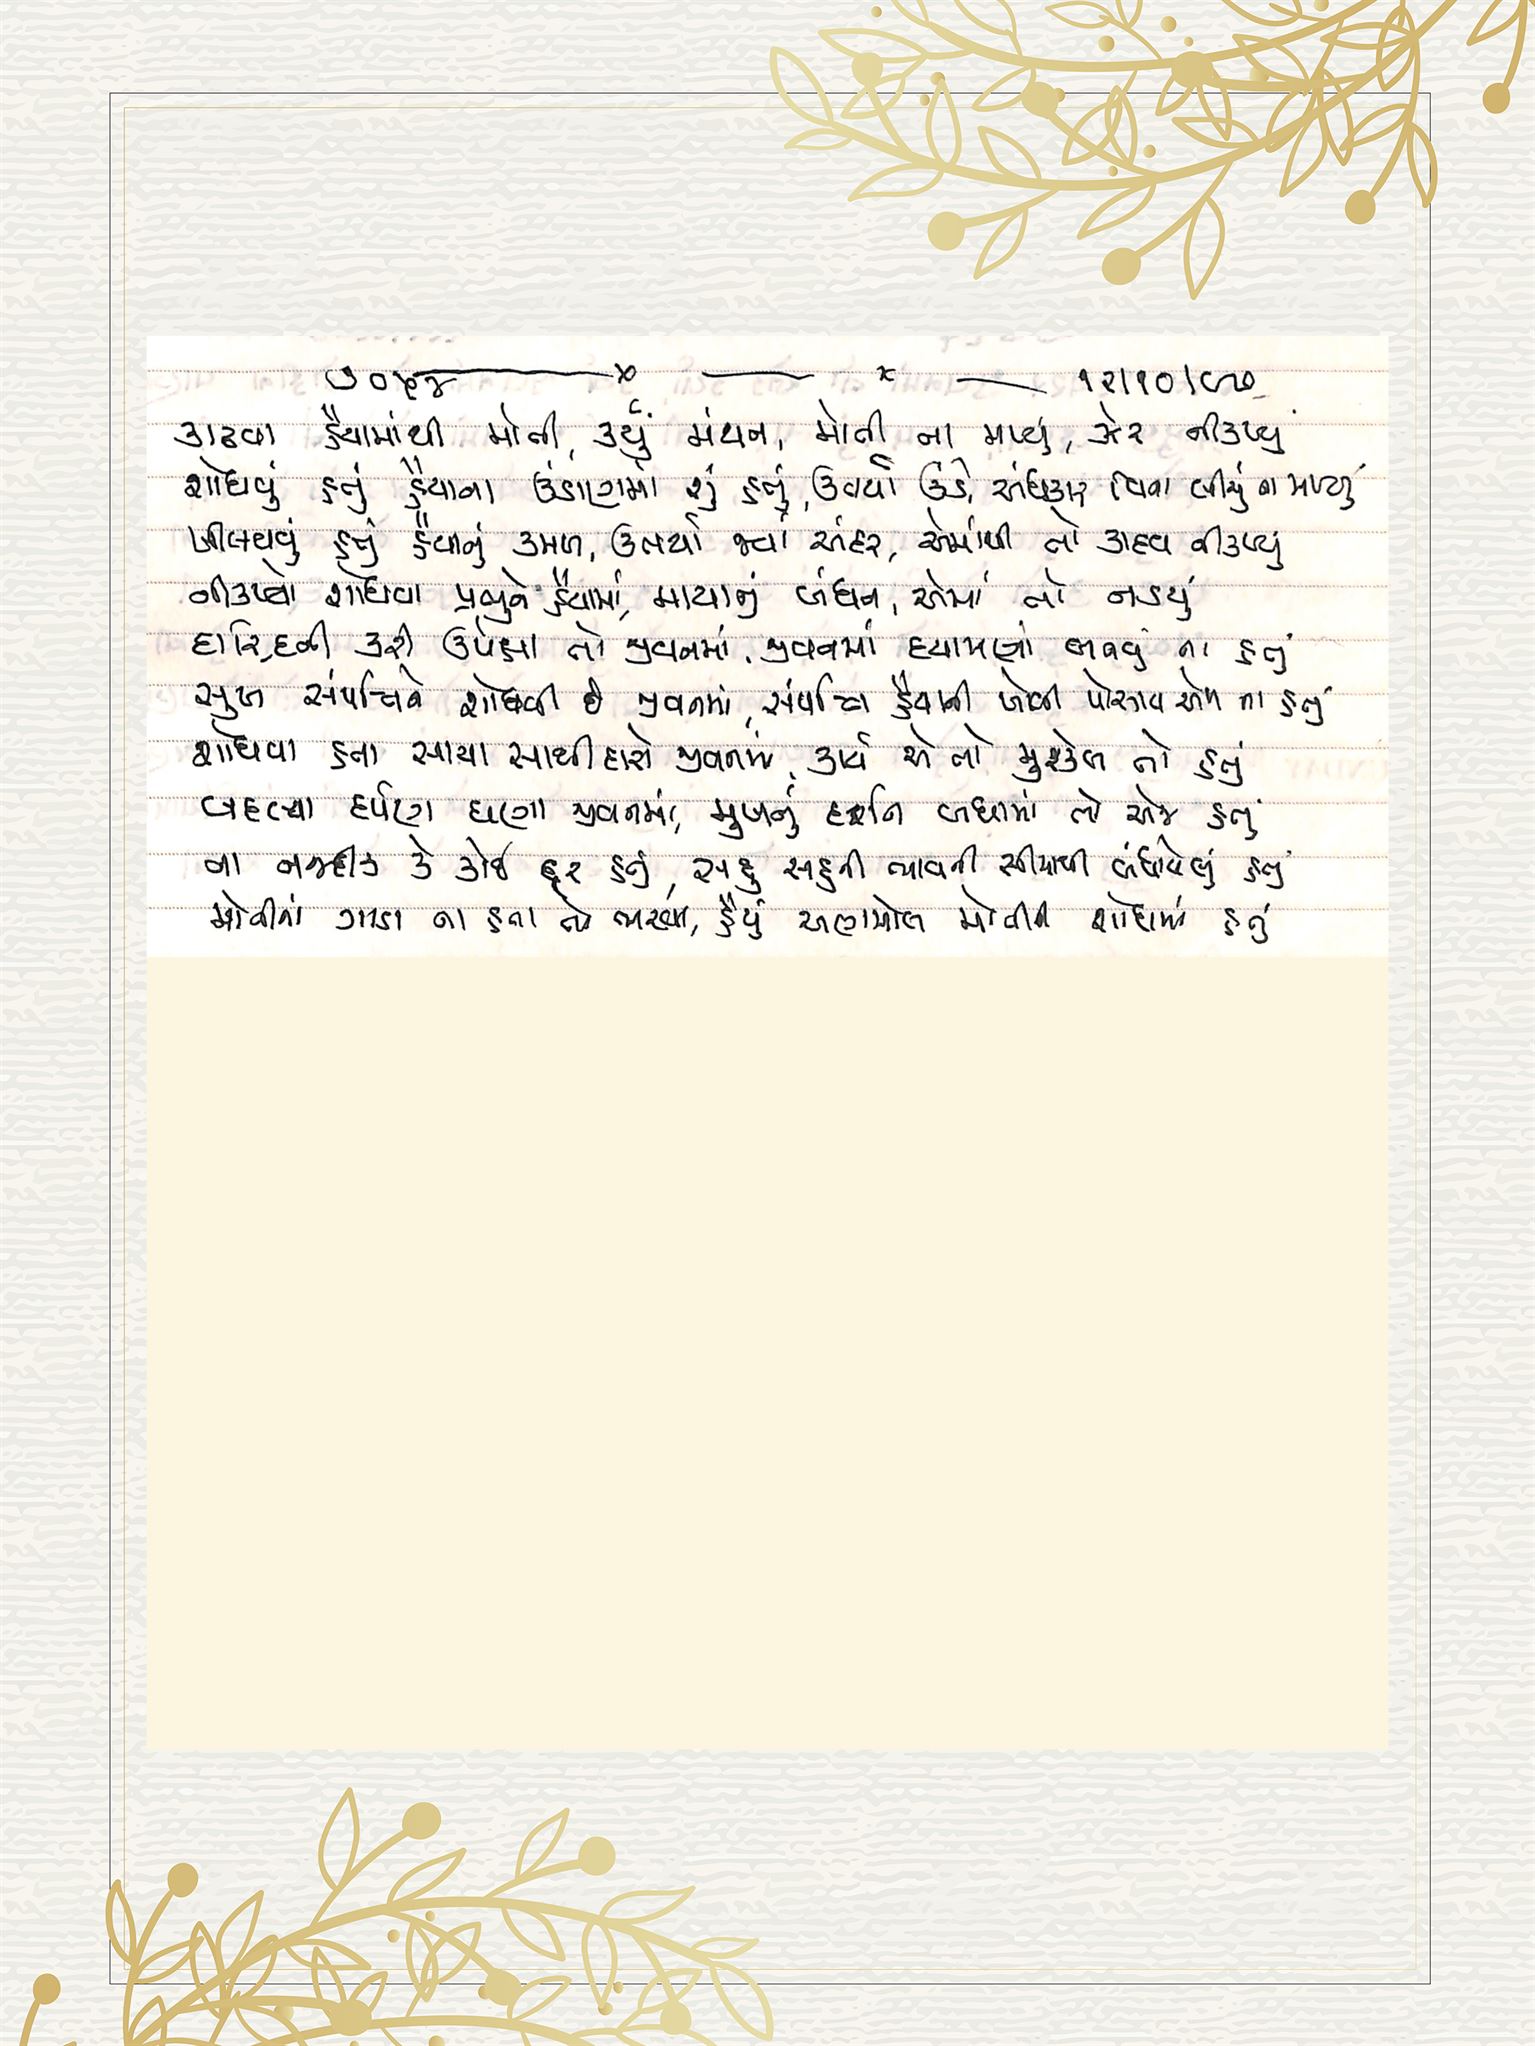 ૭૦૫૪ — x — x — ૧૨/૧૦/૯૭
કાઢવા હૈયામાંથી મોતી, કર્યું મંથન, મોતી ના મળ્યું, ઝેર નીકળ્યું
શોધવું હતું હૈયાના ઉંડાણમાં શું હતું, ઉતર્યો ઉંડે, અંધકાર વિના બીજું ના મળ્યું
ખીલવવું હતું હૈયાનું કમળ, ઉતર્યો જ્યાં અંદર, એમાંથી તો કાદવ નીકળ્યું
નીકળ્યો શોધવા પ્રભુને હૈયામાં, માયાનું બંધન, એમાં તો નડયું
દારિદ્રની કરી ઉપેક્ષા તો જીવનમાં, જીવનમાં દયામણાં બનવું ના હતું
સુખ સંપત્તિને શોધવી છે જીવનમાં, સંપત્તિ હૈયાની ખોવી પોસાય એમ ના હતું
શોધવા હતા સાચા સાથીદારો જીવનમાં, કાર્ય એ તો મુશ્કેલ તો હતું
બદલ્યા દર્પણ ઘણા જીવનમાં, મુખનું દર્શન બધામાં તો એજ હતું
ના નજદીક કે કોઈ દૂર હતું, સહુ સહુની ભાવની સીમાથી બંધાયેલું હતું
મોતીનાં ગાડા ના હતા તો ભરવા, હૈયું અણમોલ મોતીની શોધમાં હતું